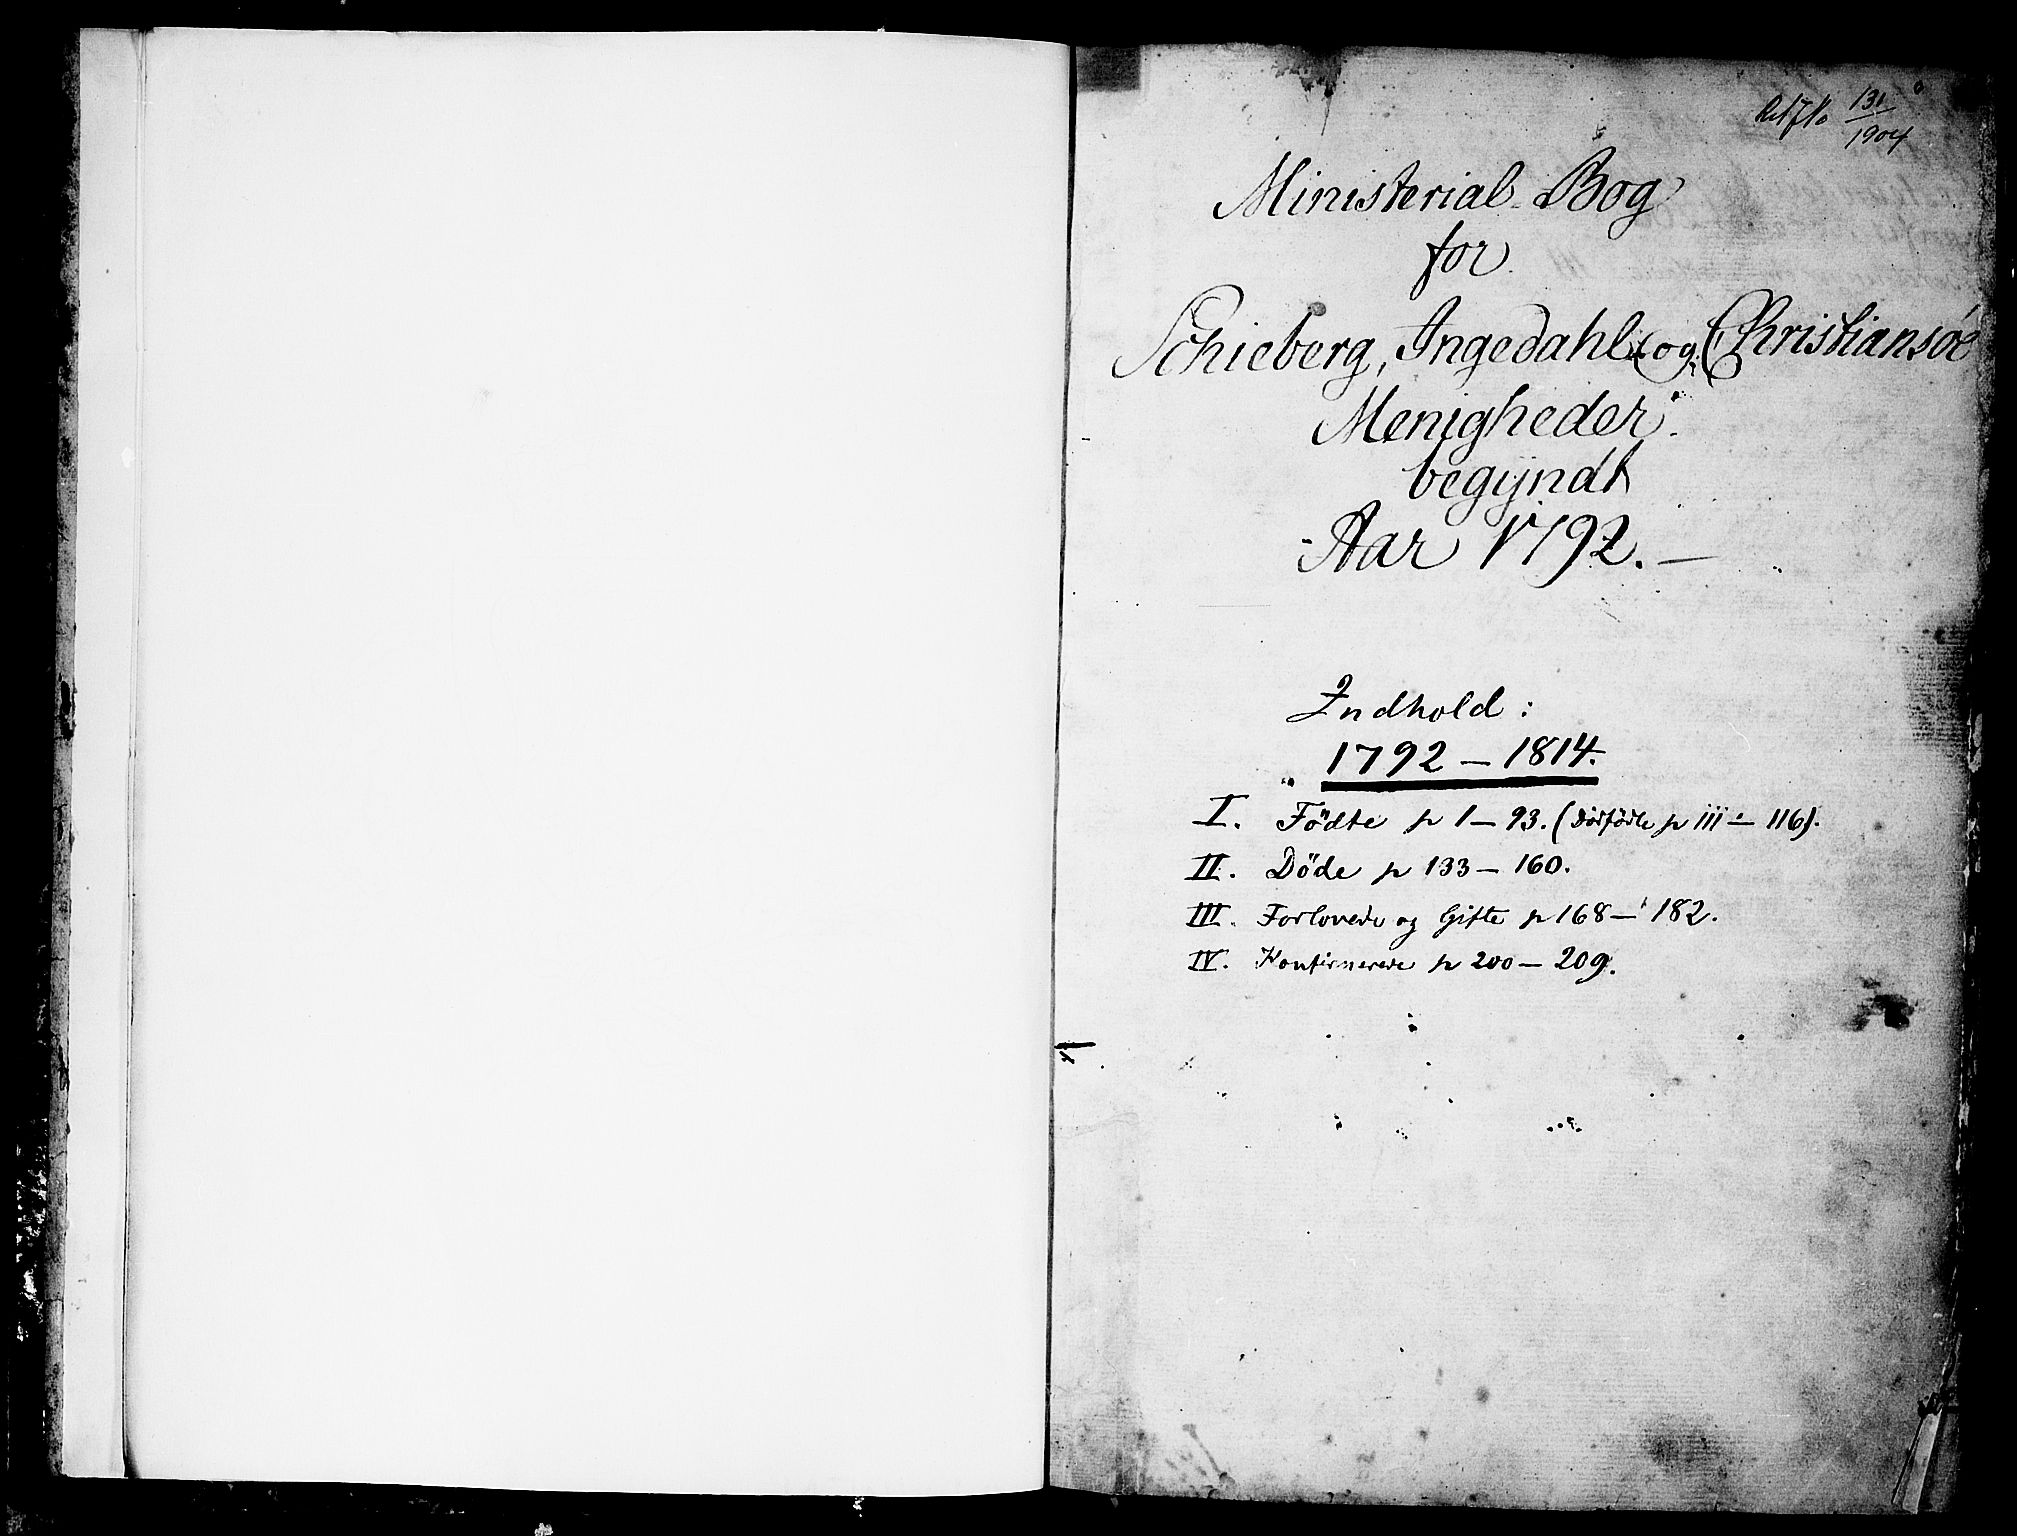 131
1904
Ministerial-Bog
for
Schieberg, Ingedahl og Christiansøe
Menigheder
begyndt
Aar 1792.—
Indhold:
1792 — 1814.
I. Födte p 1 — 93. (Dödfödte p 111 — 116).
II. Döde p 133 — 160.
III. Forlovede og Gifte p 168 — 182.
IV. Konfirmerede p 200 — 209.